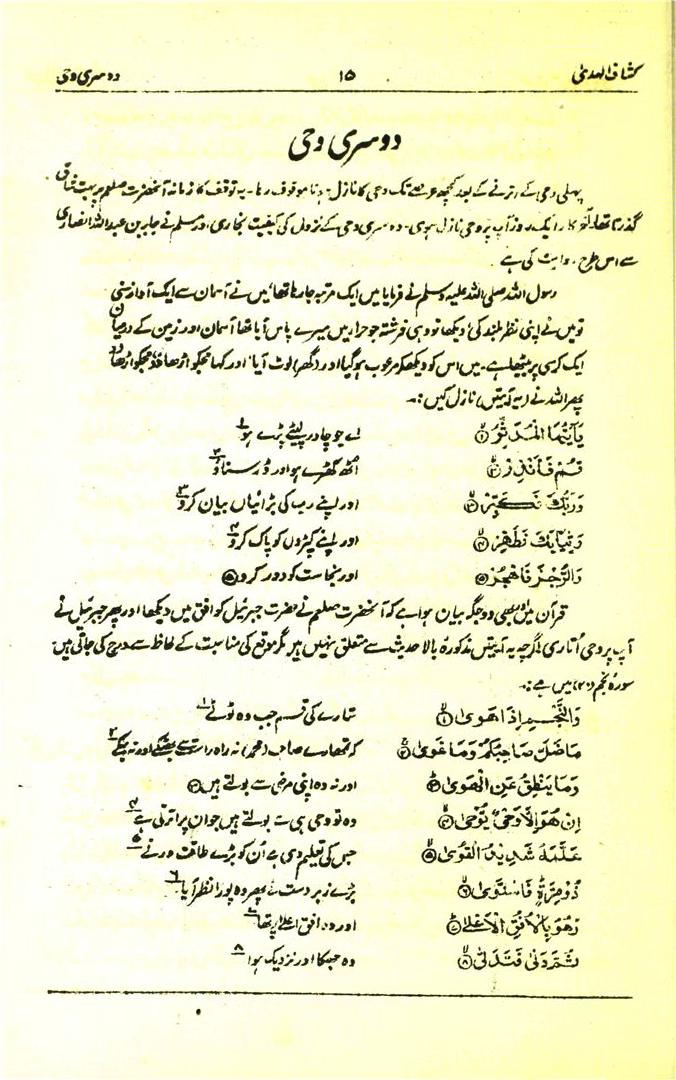 کشاف الہدیٰ ۱۵ دوسری وحی
دوسری وحی
پہلی وحی کے اترنے کے بعد کچھ عرصے تک وحی کا نازل ہونا موقوف رہا۔ یہ توقف کا زمانہ آنحضرت صلعم پر بہت شاق
گذرتا تھا۔ آخر کار ایک روز آپ پر وحی نازل ہوی۔ دوسری وحی کے نزول کی کیفیت بخاری اور مسلم نے جابر بن عبداللہ انصاری
سے اس طرح روایت کی ہے
رسول اللہ صلی اللہ علیہ وسلم نے فرمایا میں ایک مرتبہ جا رہا تھا میں نے آسمان سے ایک آواز سنی
تو میں نے اپنی نظر بلند کی دیکھا تو وہی فرشتہ جو حرا میں میرے پاس آیا تھا آسمان اور زمین کے درمیان
ایک کرسی پر بیٹھا ہے۔ میں اس کو دیکھکر مرعوب ہو گیا اور (گھر) لوٹ آیا اور کہا مجکو اڑھا دو مجکو اڑھا دو
پھر اللہ نے (یہ آیتیں) نازل کیں:۔
يٰٓاَيُّهَا الْمُدَّثِّرُ ۱ اے جو چادر لپٹے پڑے ہو ۱
قُمْ فَاَنْذِرْ ۲ اُٹھ کھڑے ہو اور ڈر سناؤ ۲
وَرَبَّكَ فَكَبِّرْ ۳ اور اپنے رب کی بڑائیاں بیان کرو ۳
وَثِيَابَكَ فَطَهِّرْ ۴ اور اپنے کپڑوں کو پاک کرو ۴
وَالرُّجْزَ فَاهْجُرْ ۵ اور نجاست کو دور کرو ۵
قرآن میں بھی دو جگہ بیان ہوا ہے کہ آنحضرت صلعم نے حضرت جبرئیل کو افق میں دیکھا اور پھر جبرئیل نے
آپ پر وحی اُتاری اگرچہ یہ آیتیں مذکورۂ بالا حدیث سے متعلق نہیں ہیں مگر موقع کی مناسبت کے لحاظ سے درج کی جاتی ہیں۔
سورۂ نجم (۲۰) میں ہے:۔
وَالنَّجْمِ اِذَا هَوٰى ۱ تارے کی قسم جب وہ ٹوٹے ۱
مَا ضَلَّ صَاحِبُكُمْ وَمَا غَوٰى ۲ کہ تمھارے صاحب (محمد) نہ راہ راست سے بھٹکے اور نہ بہکے ۲
وَمَا يَنْطِقُ عَنِ الْهَوٰى ۳ اور نہ وہ اپنی مرضی سے بولتے ہیں ۳
اِنْ هُوَ اِلَّا وَحْیٌ یُّوْحٰى ۴ وہ تو وحی ہی سے بولتے ہیں جو ان پر اترتی ہے ۴
عَلَّمَهٗ شَدِيْدُ الْقُوٰى ۵ جس کی تعلیم دی ہے اُن کو بڑے طاقت ور نے ۵
ذُوْ مِرَّةٍ فَاسْتَوٰى ۶ بڑے زبردست نے پھر وہ پورا نظر آیا ۶
وَهُوَ بِالْاُفُقِ الْاَعْلٰى ۷ اور وہ افق اعلےٰ پر تھا ۷
ثُمَّ دَنٰى فَتَدَلّٰى ۸ وہ جھکا اور نزدیک ہوا ۸